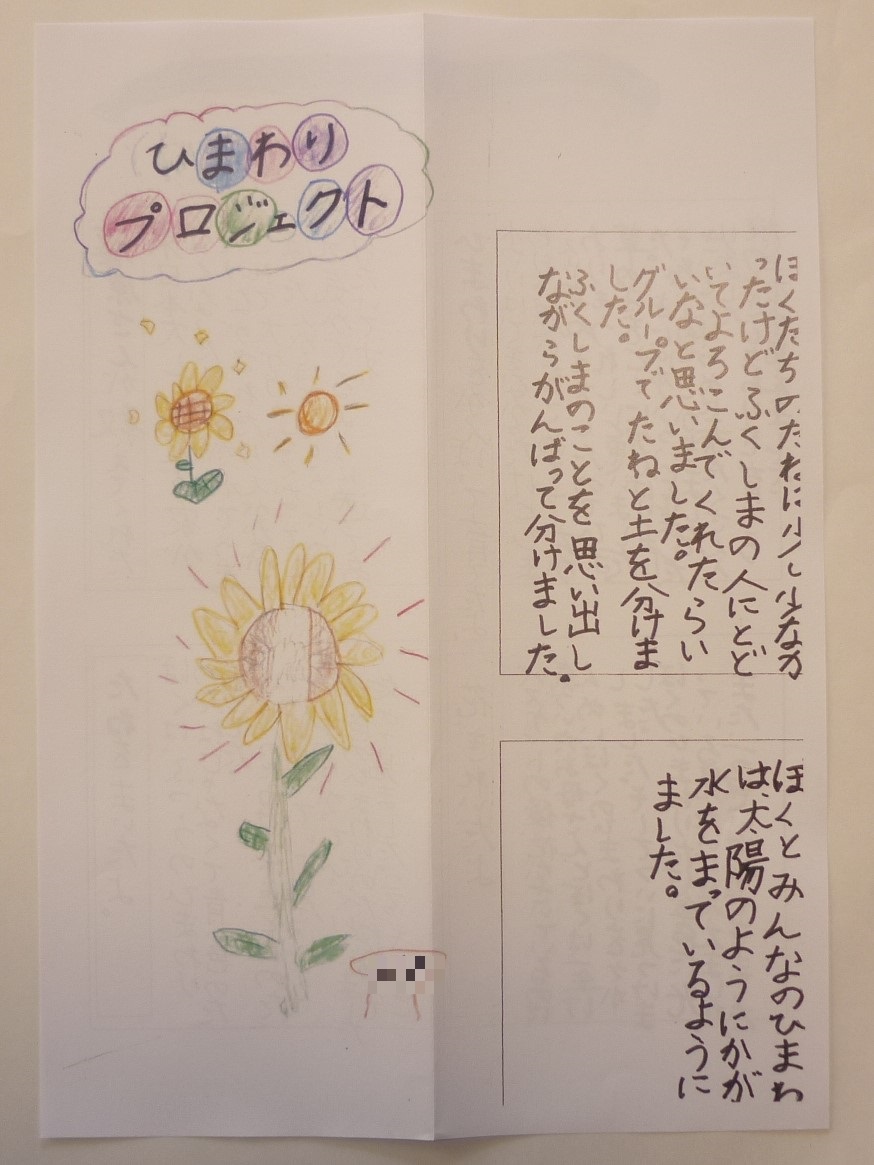 ひまわり
プロジェクト
ぼくたちのたねは少し少なか
ったけどふくしまの人にとど
いてよろこんでくれたらい
いなと思いました。
グループでたねと土を分けま
した。
ふくしまのことを思い出し
ながらがんばって分けました。
ぼくとみんなのひまわ
は、太陽のようにかが
水をまっているように
ました。